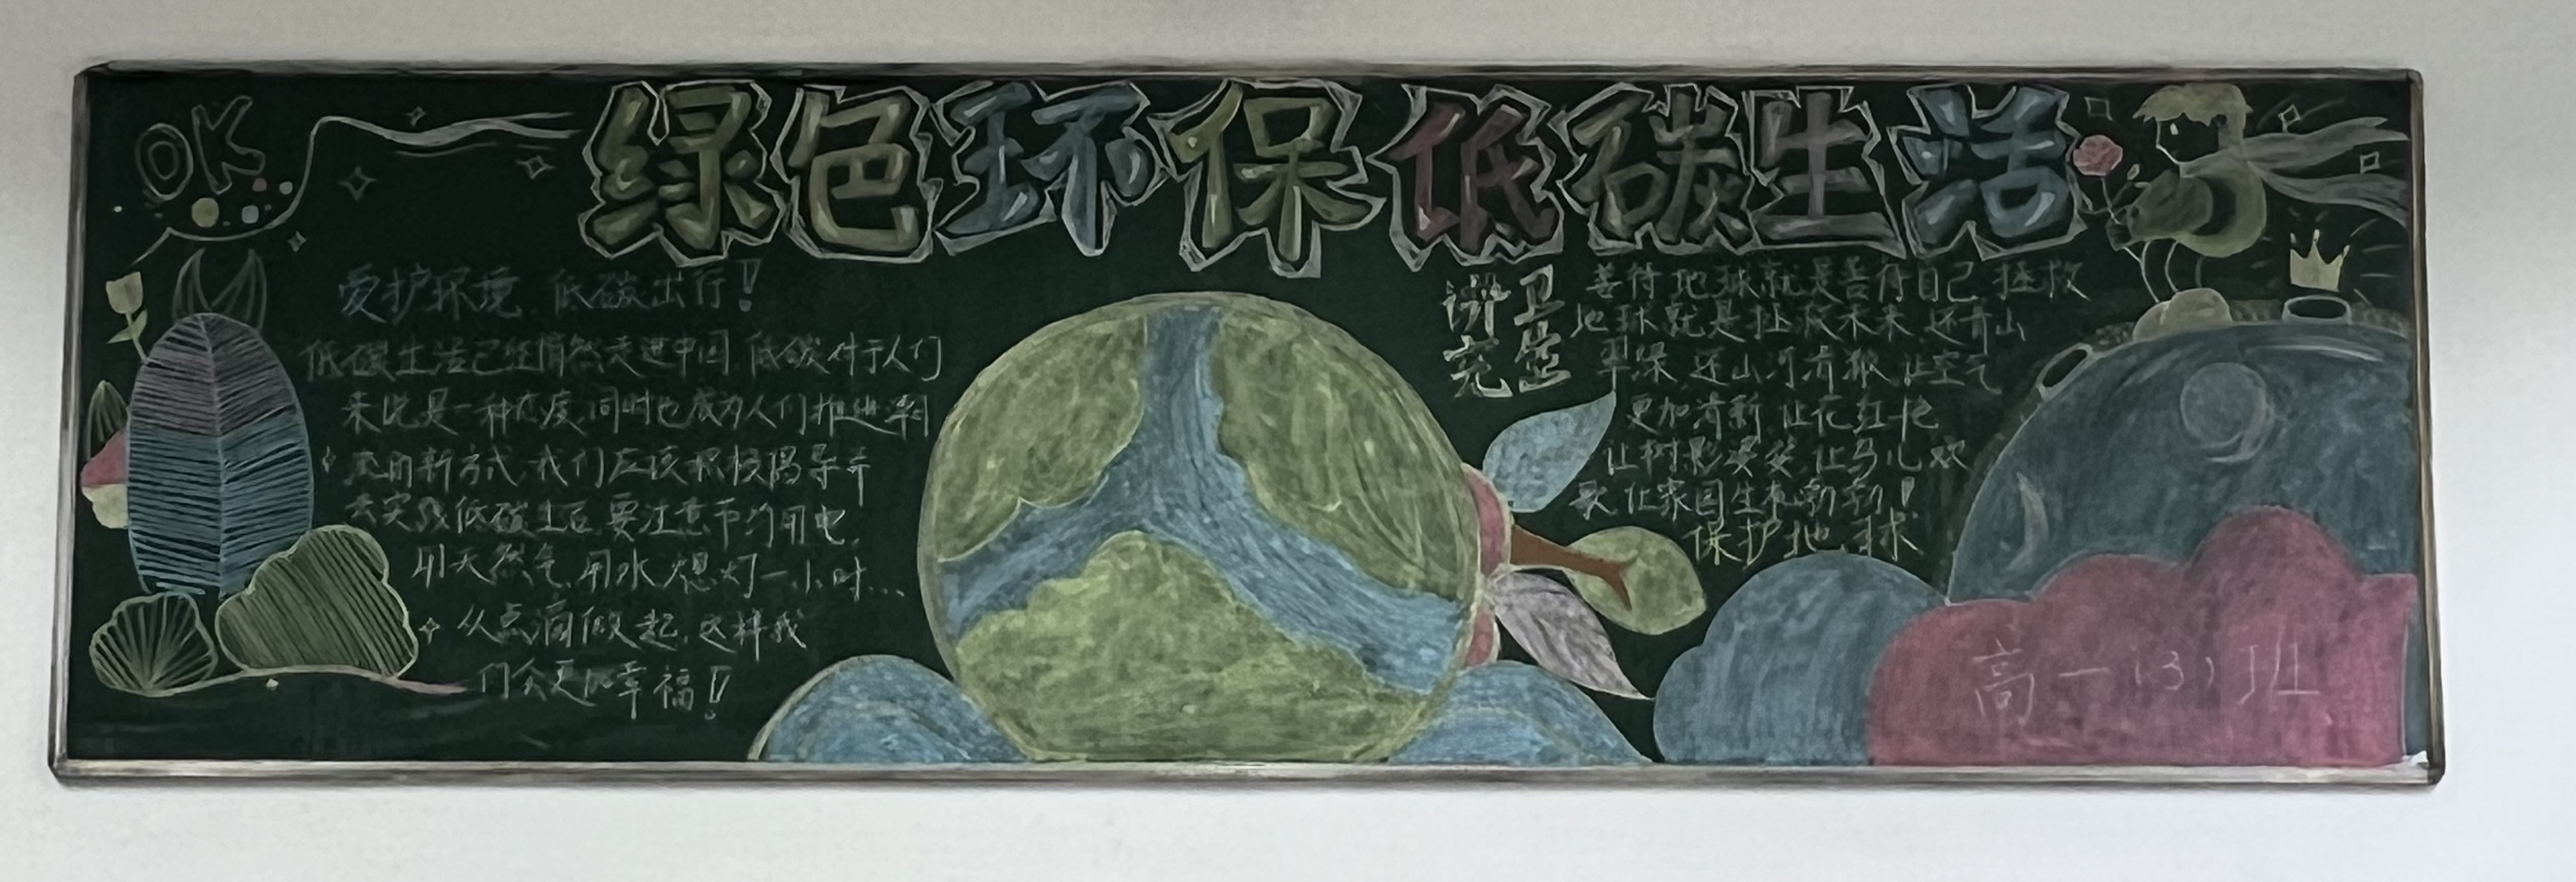 OK
绿色环保低碳生活
爱护环境 低碳出行!
低碳生活已经悄然走进中国 低碳对于人们
来说是一种态度,同时也成为人们推进到
的新方式,我们应该积极倡导并
去实践低碳生活,要注意节约用电,
用天然气,用水,熄灯一小时...
从点滴做起,这样我
们会更加幸福!
讲卫
生
善待地球就是善待自己 拯救
地球就是拯救未来 还青山
翠绿 还山河 让空气
更加清新 让花红艳
让树影婆娑 让鸟儿欢
歌 让家园生机勃勃!
保护地球
高一(3)班